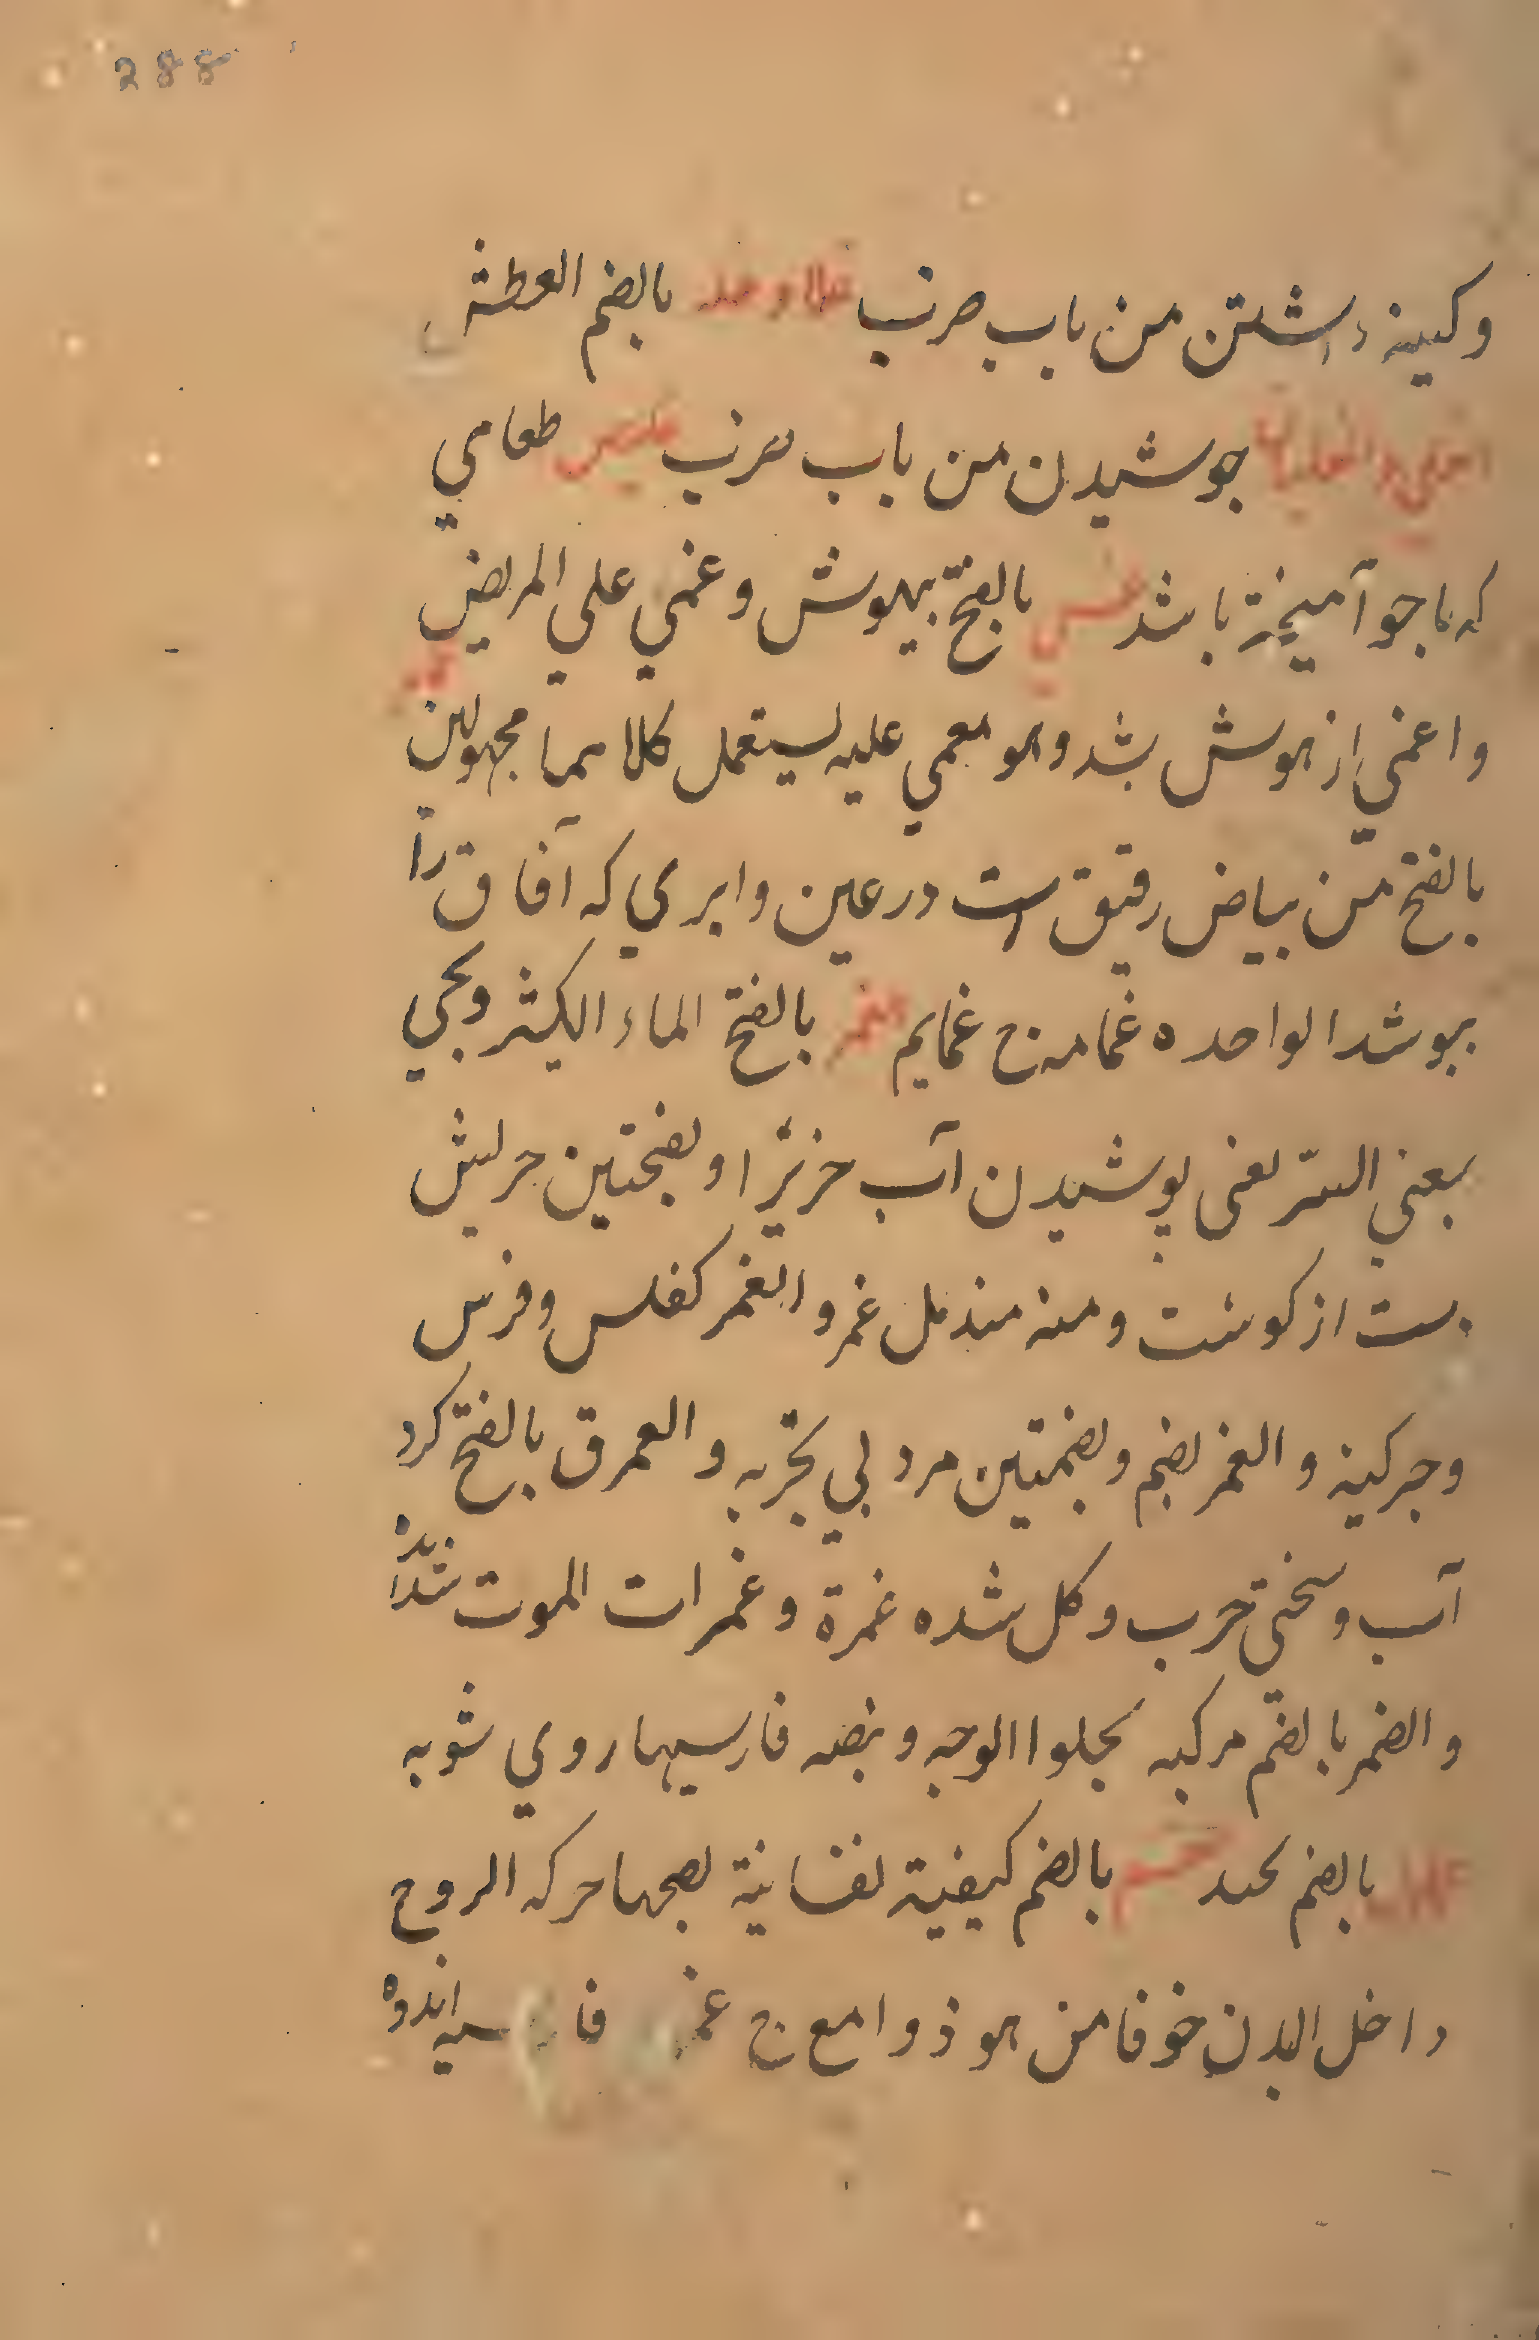 288
وكینه داشتن من باب ضرب بالضم العطش
جوشیدن من باب ضرب طعامي
که با جو آمیخته باشد بالفتح بیهوش وغمي علي المریض
واغمي از هوش بشد وهو مغمي علیه یستعمل کلاهما مجهولین
بالفتح من بیاض رقیق است در عین وابري که آفاق را
بپوشد الواحده غمامه ج غمایم الغمر بالفتح الماء الکثیر ویجي
بمعني الستر یعنی پوشیدن آب چیزیرا وبفتحتین چربش
دست از کوشت ومنه مندیل غمر والغمر کفلس وفرس
وجرکینه والغمر بضم وبضمتین مرد بي تجربه والعمرق بالفتح کرد
آب وسختي حرب وکل شده غمرة وغمرات الموت شدائده
والضمر بالضم مرکبه یجلوا الوجه وبضه فارسیها روي شویه
بالضم بالضم کیفیة نفسانیة یصحبها حرکه الروح
داخل البدن خوفا من هو ذوامع ج اندوه